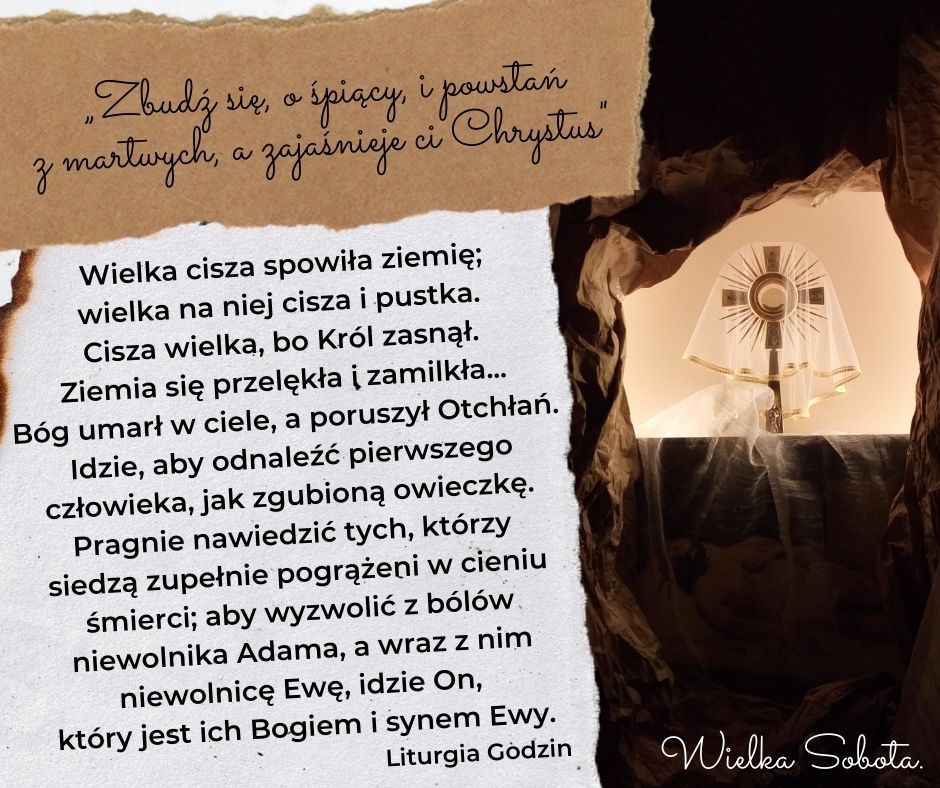 „Zbudź się, o śpiący, i powstań
z martwych, a zajaśnieje ci Chrystus"
Wielka cisza spowiła ziemię;
wielka na niej cisza i pustka.
Cisza wielka, bo Król zasnął.
Ziemia się przelękła i zamilkła...
Bóg umarł w ciele, a poruszył Otchłań.
Idzie, aby odnaleźć pierwszego
człowieka, jak zgubioną owieczkę.
Pragnie nawiedzić tych, którzy
siedzą zupełnie pogrążeni w cieniu
śmierci; aby wyzwolić z bólów
niewolnika Adama, a wraz z nim
niewolnicę Ewę, idzie On,
który jest ich Bogiem i synem Ewy.
Liturgia Godzin
Wielka Sobota.